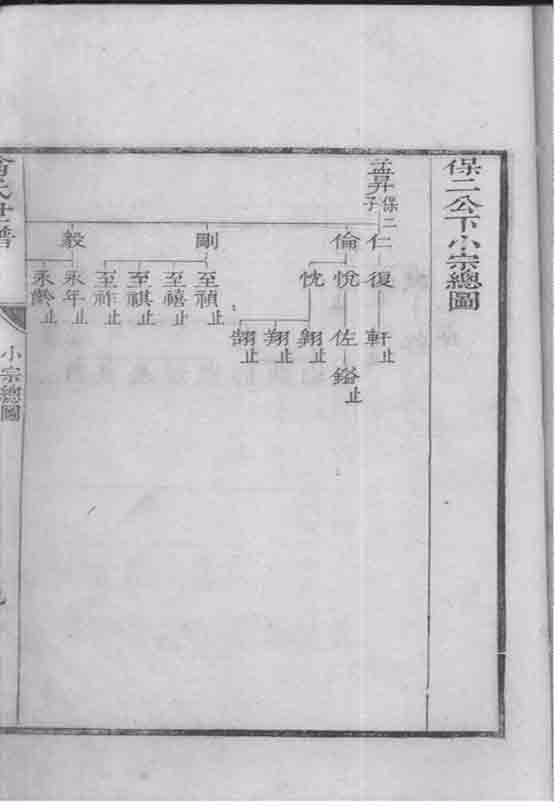 保二公下小宗總圖
孟昇
保二子
仁 倫 剛 毅
復 悅 忱 至禎止 至禧止 至祺止 至祚止 永年止 永齡止
軒止 佐 翱止 翔止 翮止
鎰止
俞氏世譜
小宗總圖